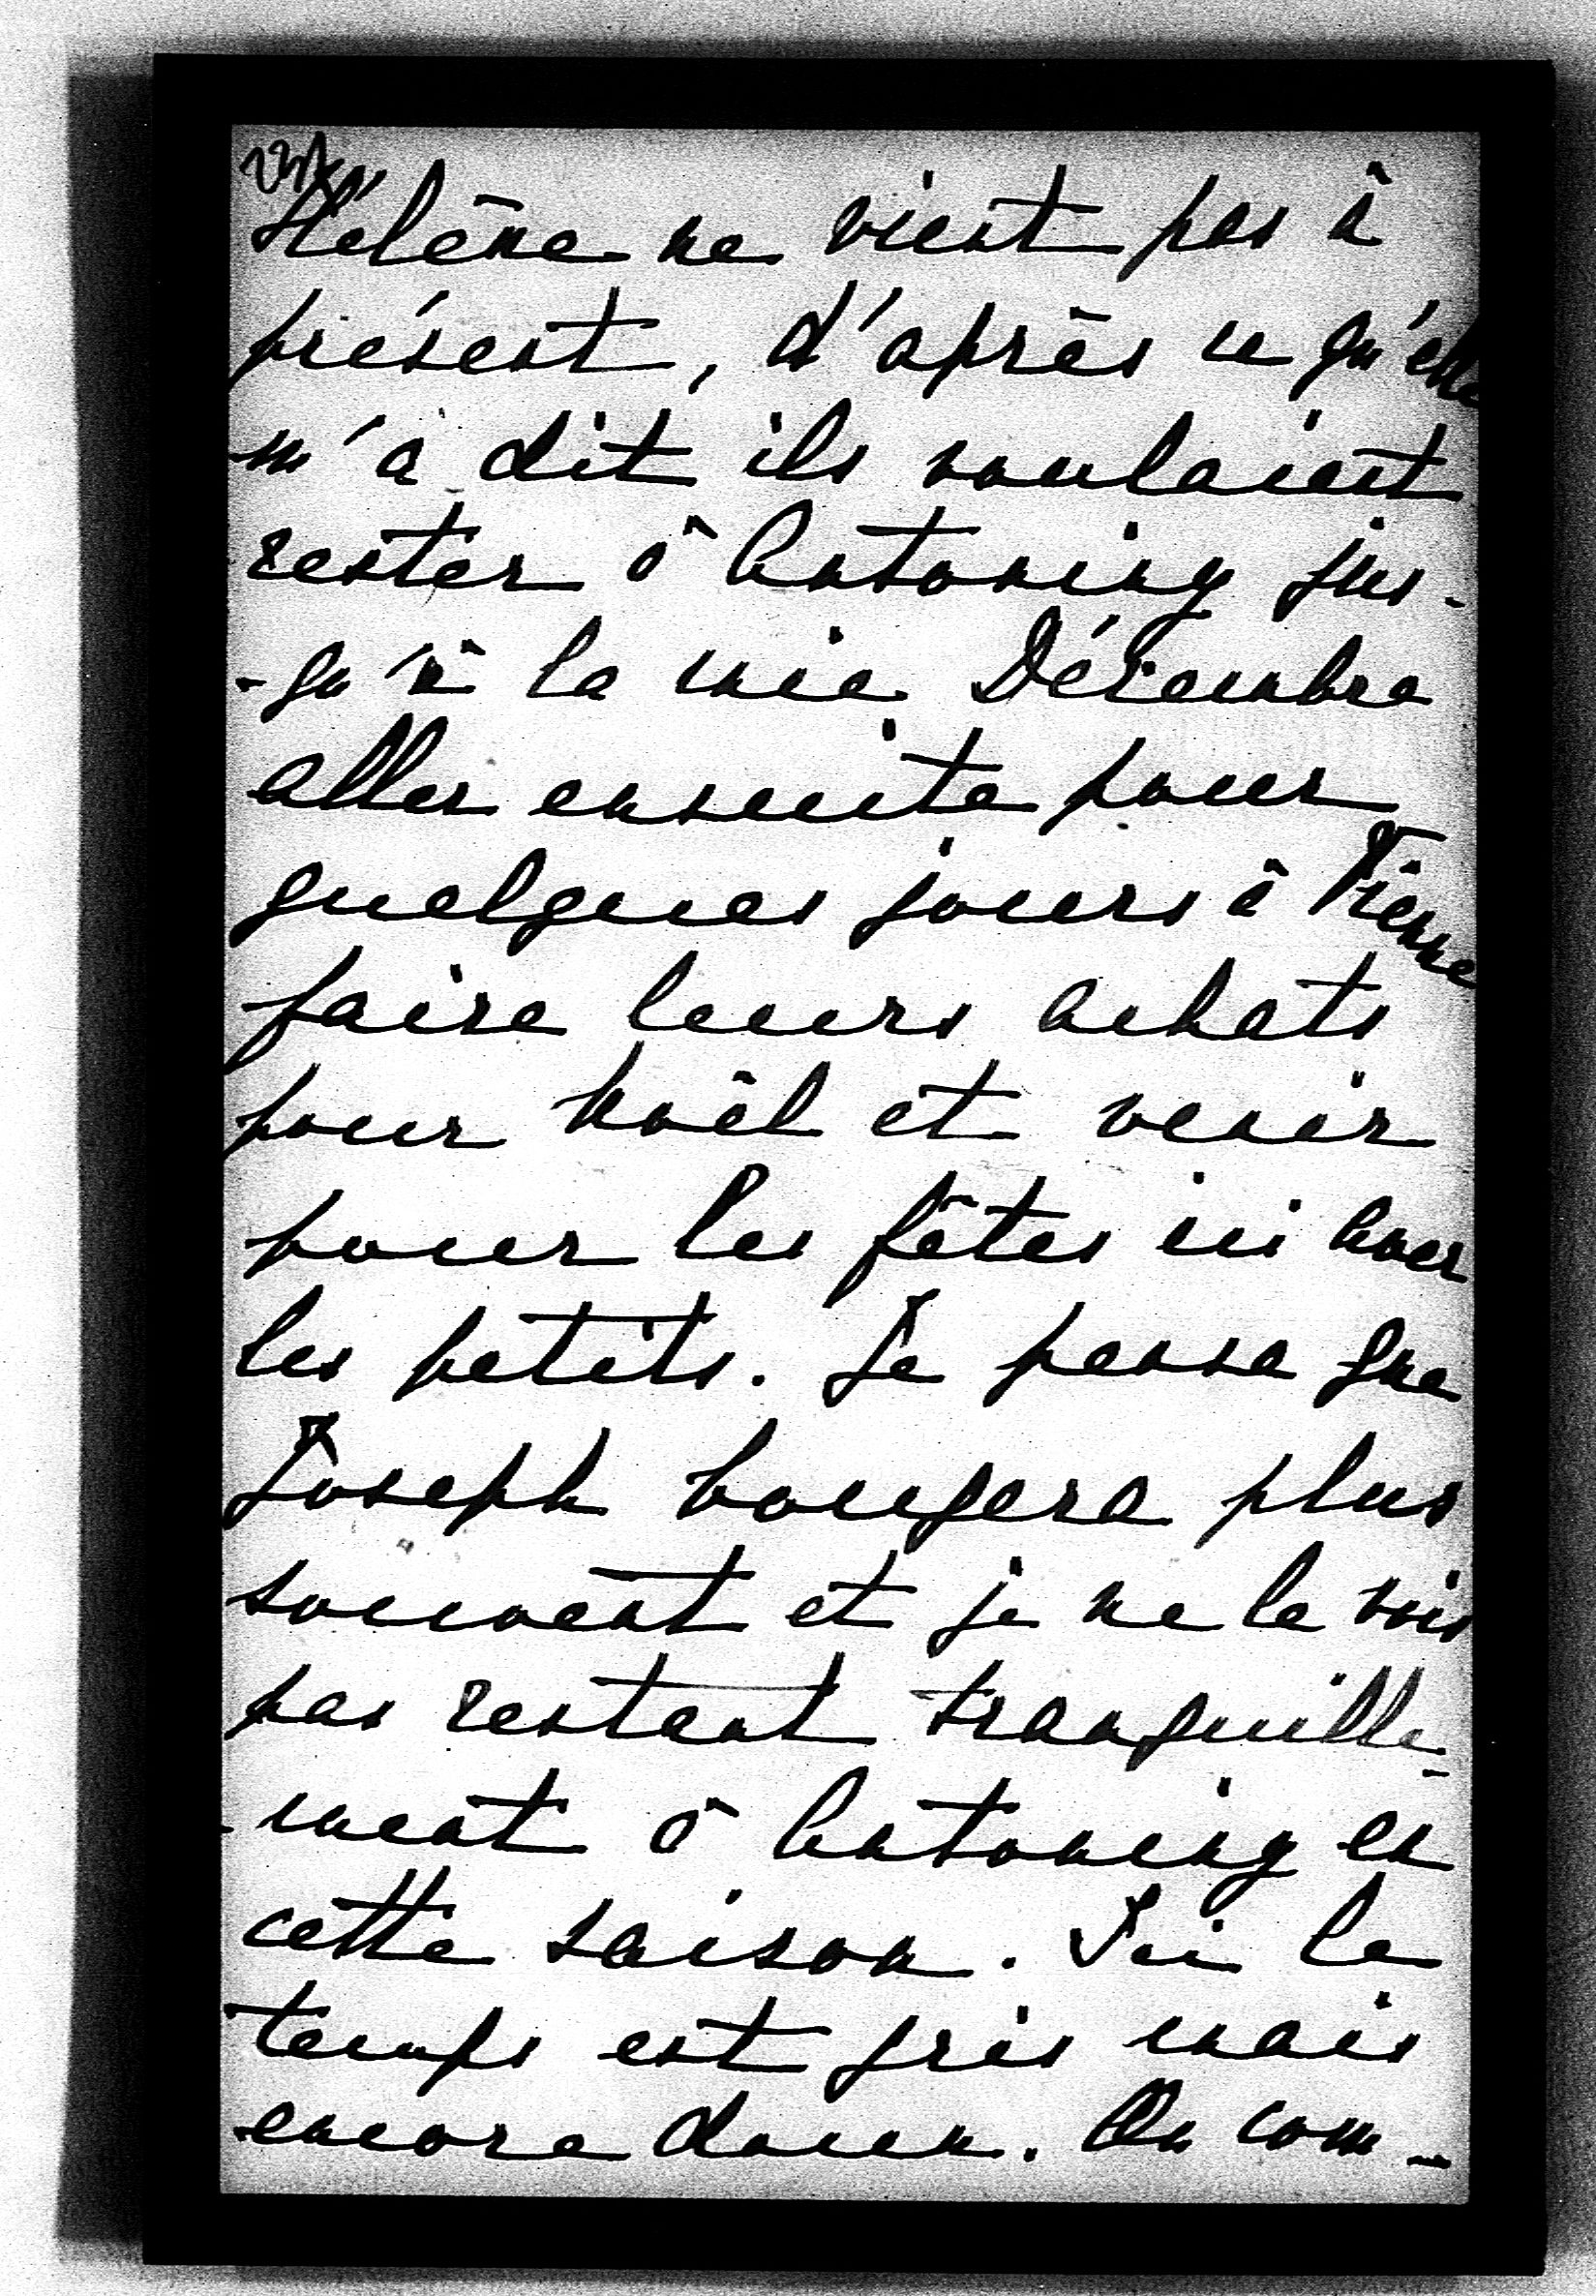 Hélène ne vient pas à
présent, d'après ce qu'elle
m'a dit ils voulaient
rester à Antoniny jus-
-qu'à la mie Décembre
aller ensuite pour
quelques jours à Vienne
faire leurs achats
pour Noël et venir
pour les fêtes ici avec
les petits. Je pense que
Joseph bougera plus
souvent et je ne le vois
pas restant tranquille-
-ment à Antoniny en
cette saison. Ici le
temps est gris mais
encore doux. On com-